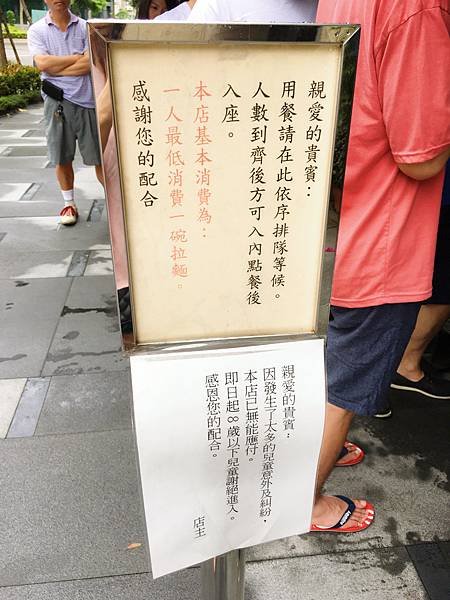 親愛的貴賓：
用餐請在此依序排隊等候。
人數到齊後方可入內點餐後
入座。
本店基本消費為：
一人最低消費一碗拉麵。
感謝您的配合
親愛的貴賓：
因發生了太多的兒童意外及糾紛，
本店已無能應付。
即日起8歲以下兒童謝絕進入。
感恩您的配合。
店主